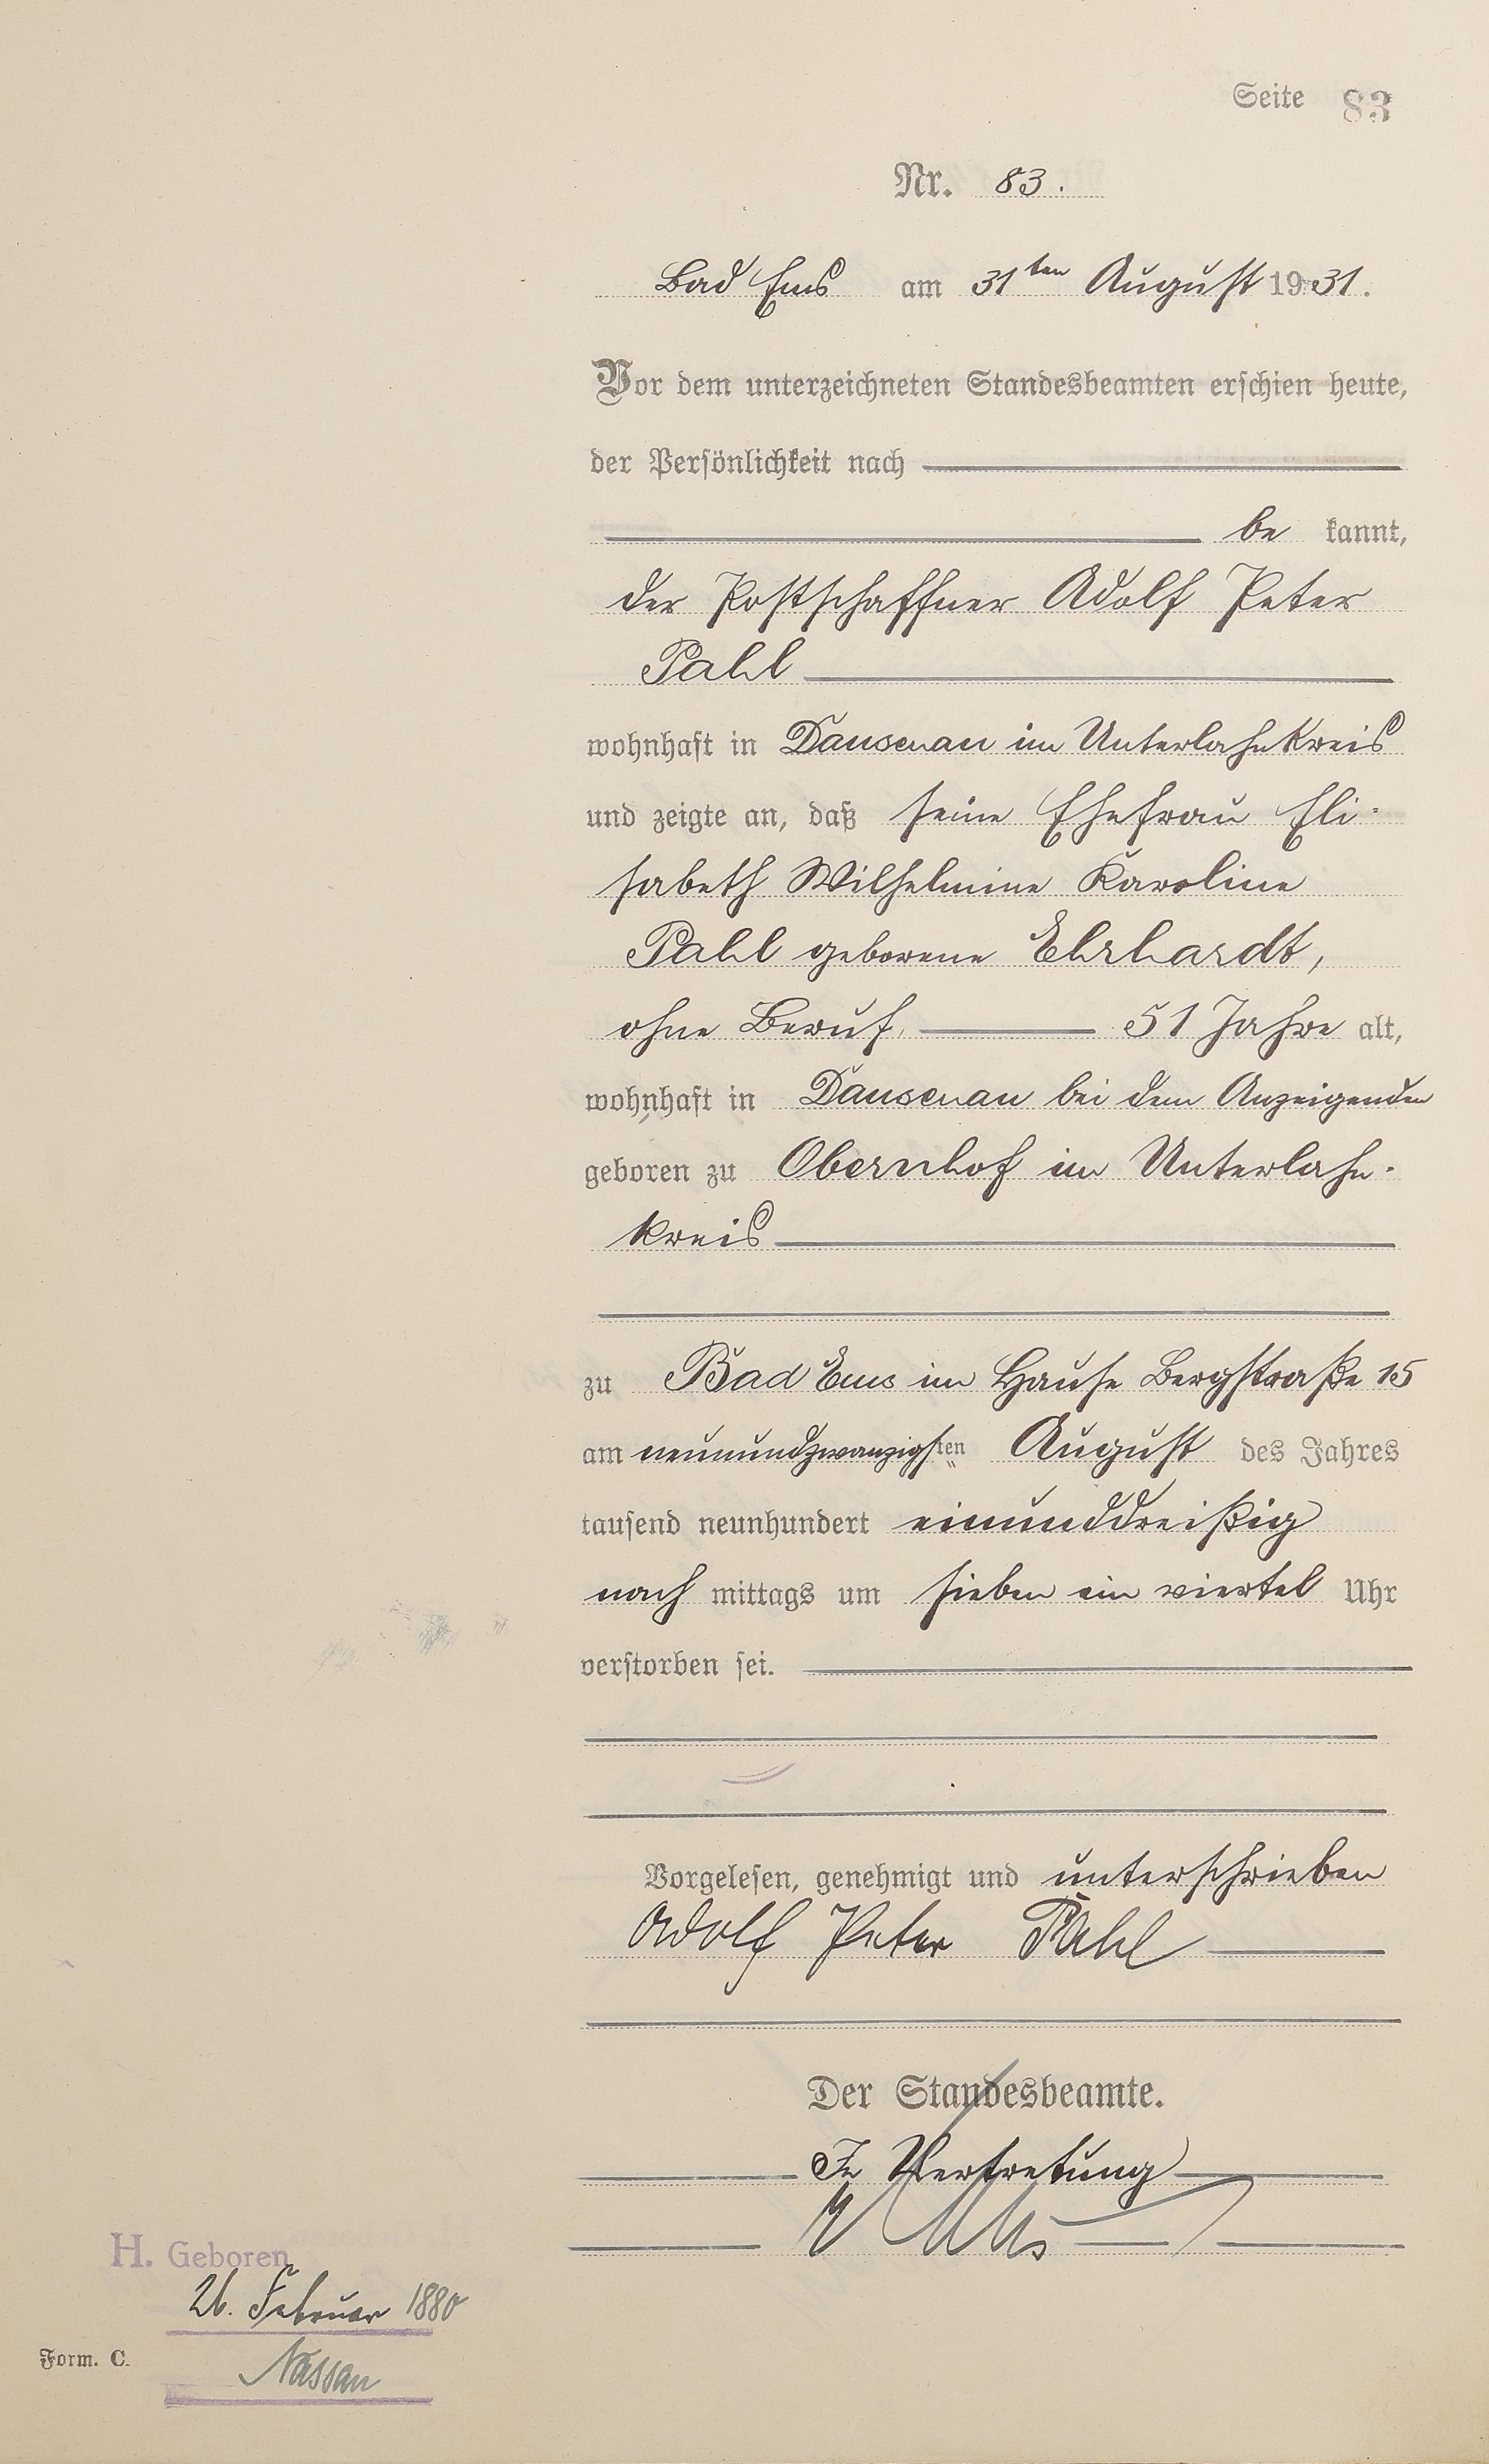 Seite 83
Nr. 83.
Bad Ems am 31ten August 1931.
Vor dem unterzeichneten Standesbeamten erschien heute,
der Persönlichkeit nach
be kannt,
der Postschaffner Adolf Peter
Pahl
wohnhaft in Dausenau im Unterlahnkreis
und zeigte an, daß seine Ehefrau Eli-
sabeth Wilhelmine Karoline
Pahl geborene Ehrhardt,
ohne Beruf, 51 Jahre alt,
wohnhaft in Dausenau bei dem Anzeigenden
geboren zu Obernhof im Unterlahn-
kreis
zu Bad Ems im Hause Bergstraße 15
am neunundzwanzigsten August des Jahres
tausend neunhundert einunddreißig
nach mittags um sieben ein viertel Uhr
verstorben sei.
Vorgelesen, genehmigt und unterschrieben
Adolf Peter Pahl
Der Standesbeamte.
In Vertretung
H. Geboren
26. Februar 1880
Nassau
Form. C.